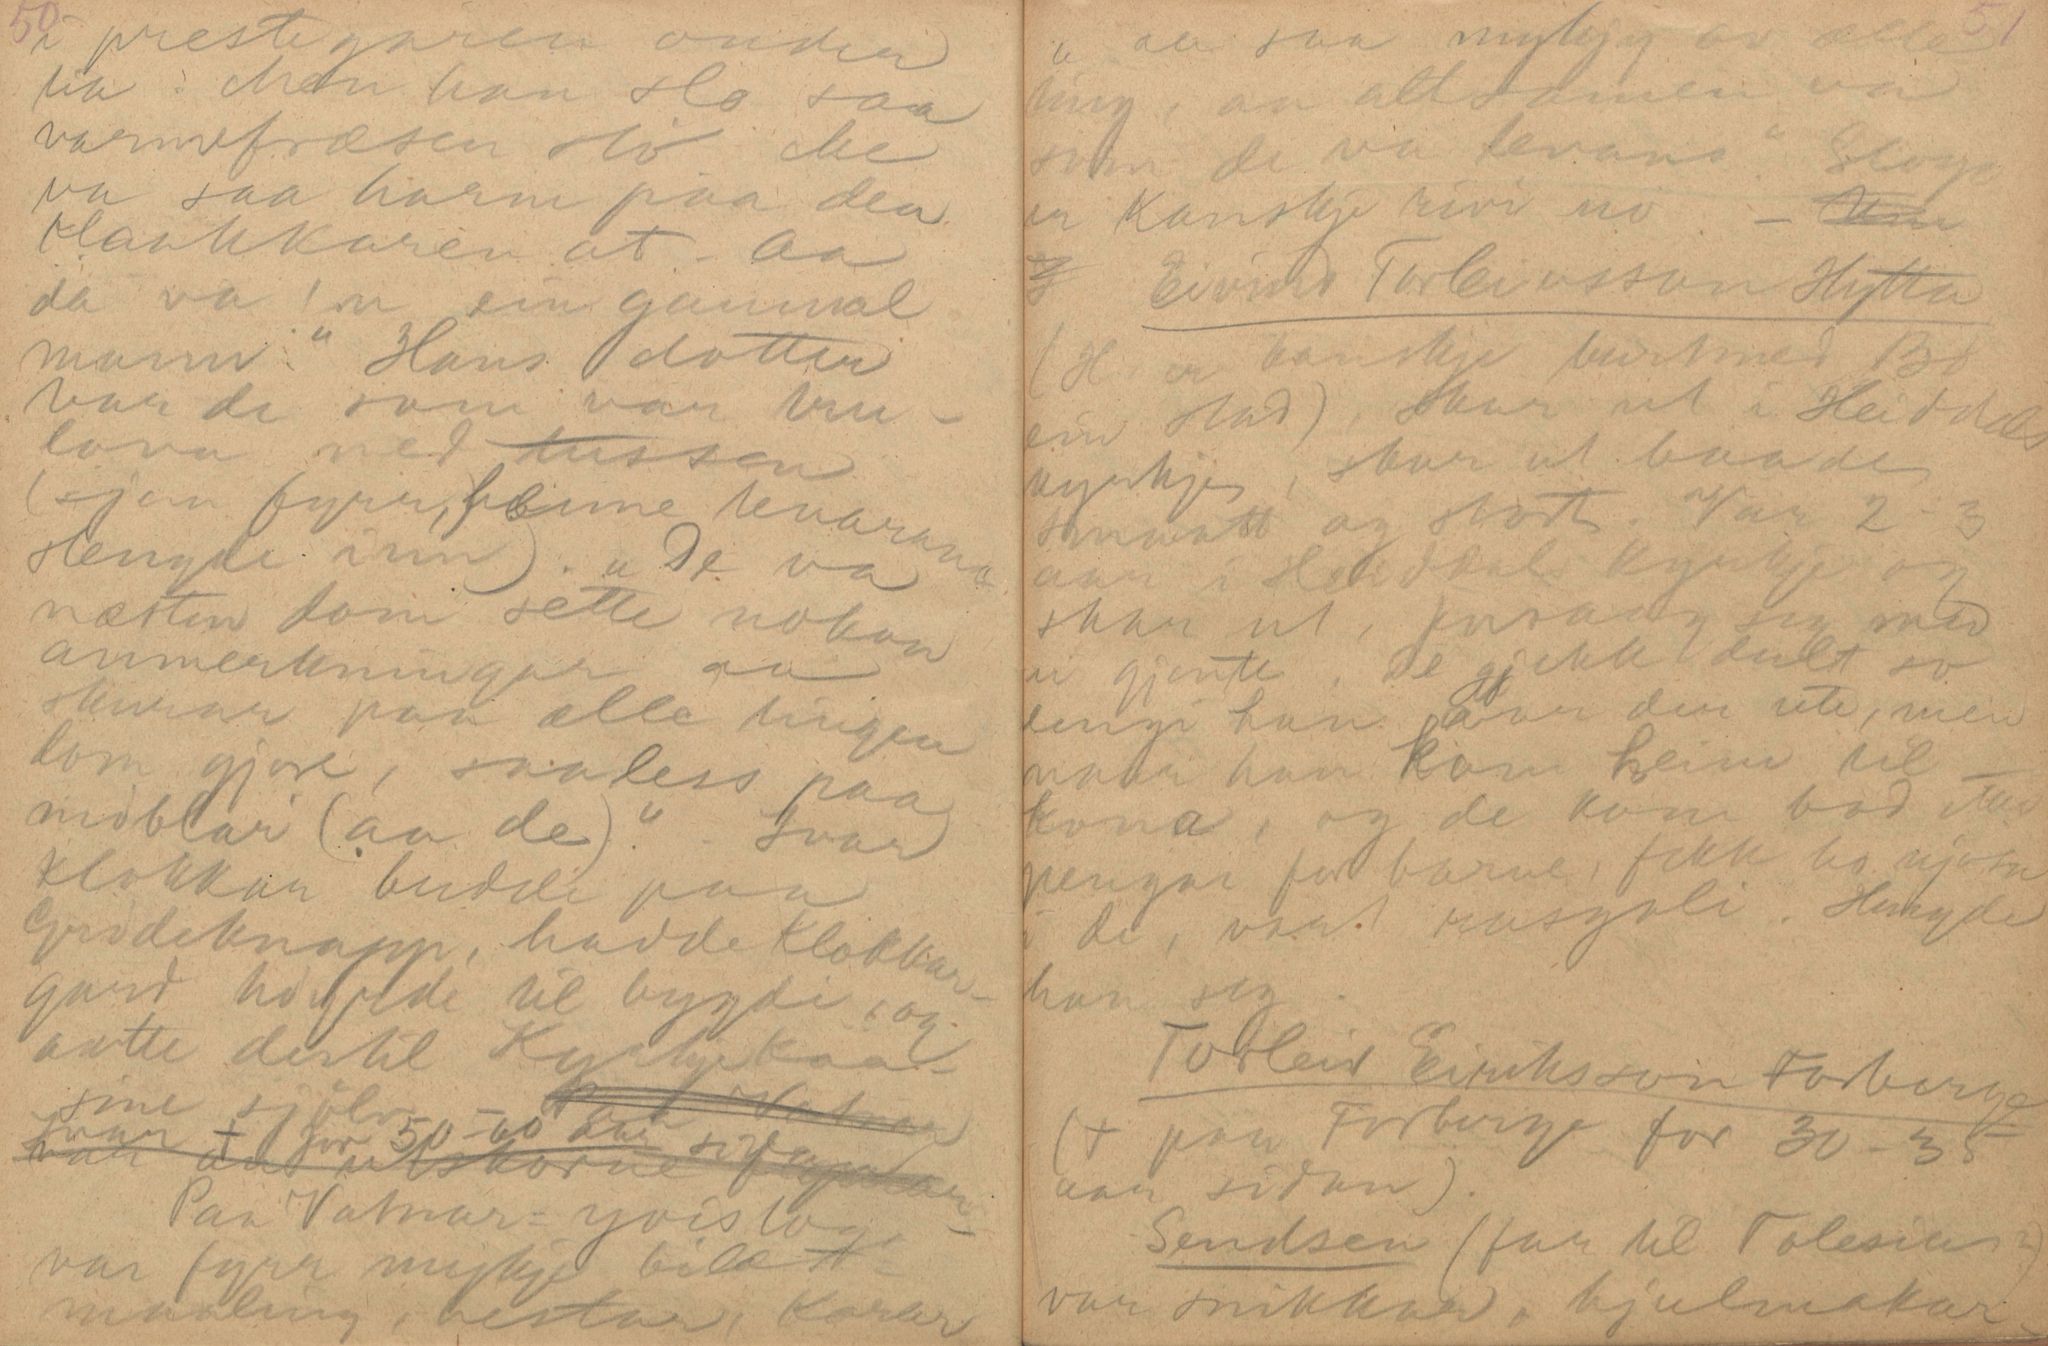 50
i prestegaren onder
tia. Men han slo saa
varmefræsen stō. Me
va saa harm paa den
Haakkaren at. Aa
da va 'n ein gammal
mann." Hans dotter
var de som var tru-
lova med tussen
(sjaa fyrr, heime tevarana
slengde inn). "De va
næsten dom sette nokon
anmerkningar aa
skurar paa alle tingen
dom gjore, saaless paa
möblar (aa de)." Ivar
Klokkar budde paa
Grodeknapp, hadde Klokkar-
gard höyrde til bygdi, og
aatte destil Kyrkjekaa-
sine sjölv. Paa Vatnar
Ivar † for 50-60 aar sidan
var da utskorne
Paa Vatnar-yvistog
var fyrr mykje bilæt-
maaling, hestar, Karar
51
" aa saa mykjy av alle
ting, aa altsamen va
som de va levane". Stoga
er Kanskje rivi no –
Eivind Torleivsson Hytta
(H. er kanskje burtmed Bö
ein stad), skar ut i Heiddals
kyrkje, skar ut baade
smaatt og stort. Var 2-3
aar i Heiddal Kyrkje og
skar ut, forsaag seg med
ei gjente. De gjekk dult so
lengi han var der ute, men
naar han kom heim til
kona, og de kom bod etter
pengar for barne, fekk ho njosn
i de, vart rasgali. Hengde
han seg.
Torleiv Eiriksson Forberge
(† paa Forberge for 30-35
aar sidan).
Sendsen (far til Tolesius)
var snikkar, hjulmakar-